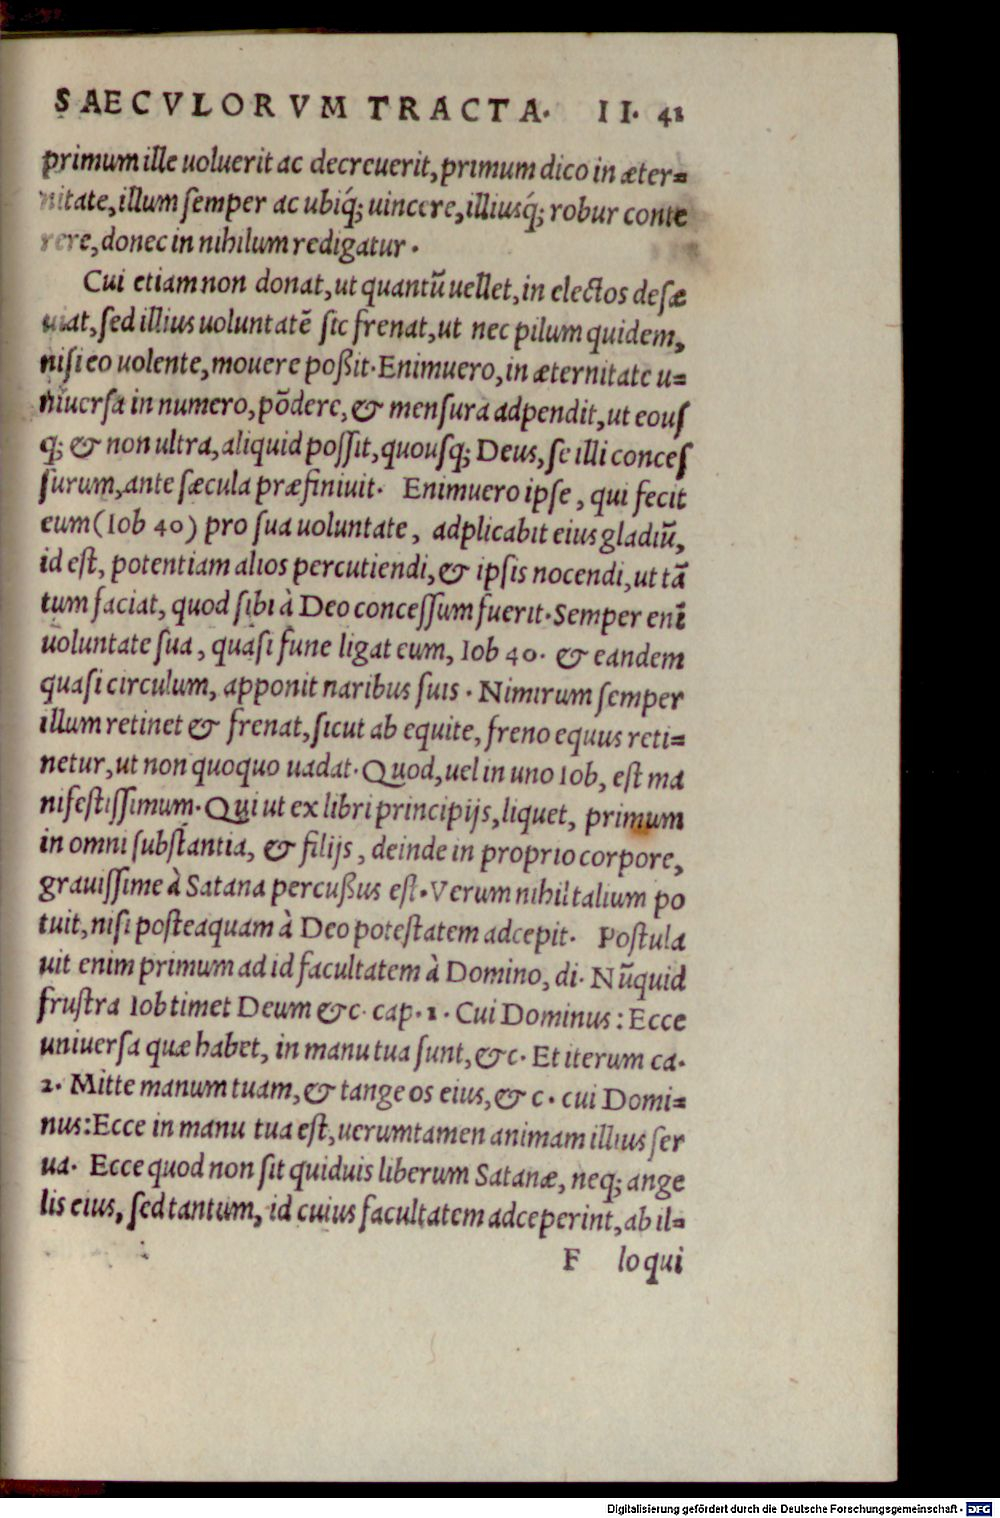 SAECVLORVM TRACTA. II. 41
primum ille uoluerit ac decreuerit, primum dico in æter=
nitate, illum semper ac ubiq́; uincere, illiusq́; robur conte
rere, donec in nihilum redigatur.
Cui etiam non donat, ut quantũ uellet, in electos desæ
uiat, sed illius uoluntatẽ sic frenat, ut nec pilum quidem,
nisi eo uolente, mouere poßit. Enimuero, in æternitate u=
niuersa in numero, põdere, & mensura adpendit, ut eous
q; & non ultra, aliquid possit, quousq; Deus, se illi conces
surum, ante sæcula præfiniuit. Enimuero ipse, qui fecit
eum (Iob 40) pro sua uoluntate, adplicabit eius gladiũ,
id est, potentiam alios percutiendi, & ipsis nocendi, ut tã
tum faciat, quod sibi à Deo concessum fuerit. Semper enĩ
uoluntate sua, quasi fune ligat eum, Iob 40. & eandem
quasi circulum, apponit naribus suis. Nimirum semper
illum retinet & frenat, sicut ab equite, freno equus reti=
netur, ut non quoquo uadat. Quod, uel in uno Iob, est ma
nifestissimum. Qui ut ex libri principijs, liquet, primum
in omni substantia, & filijs, deinde in proprio corpore,
grauissime à Satana percußus est. Verum nihil talium po
tuit, nisi posteaquam à Deo potestatem adcepit. Postula
uit enim primum ad id facultatem à Domino, di. Nũquid
frustra Iob timet Deum &c. cap. 1. Cui Dominus: Ecce
uniuersa quæ habet, in manu tua sunt, &c. Et iterum ca.
2. Mitte manum tuam, & tange os eius, & c. cui Domi=
nus: Ecce in manu tua est, uerumtamen animam illius ser
ua. Ecce quod non sit quiduis liberum Satanæ, neq; ange
lis eius, sed tantum, id cuius facultatem adceperint, ab il=
F lo qui
Digitalisierung gefördert durch die Deutsche Forschungsgemeinschaft - DFG